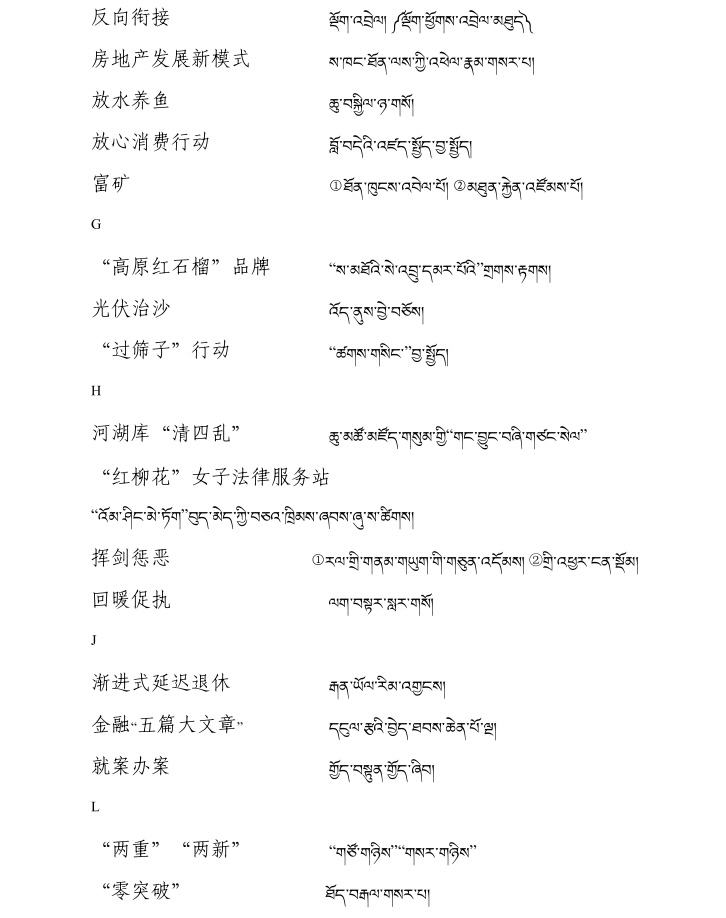 反向衔接 ལྡོག་འབྲེལ། ༼ལྡོག་ཕྱོགས་འབྲེལ་མཐུད༽
房地产发展新模式 ས་ཁང་ཐོན་ལས་ཀྱི་འཕེལ་རྣམ་གསར་པ།
放水养鱼 ཆུ་བསྐྱིལ་ཉ་གསོ།
放心消费行动 བློ་བདེའི་འཛད་སྤྱོད་བྱ་སྤྱོད།
富矿 ①ཐོན་ཁུངས་འབེལ་པོ། ②མཐུན་རྐྱེན་འཛོམས་པོ།
G
“高原红石榴”品牌 “ས་མཐོའི་སེ་འབྲུ་དམར་པོའི”གྲགས་རྟགས།
光伏治沙 འོད་ནུས་བྱེ་བཅོས།
“过筛子”行动 “ཚགས་གསིང་”བྱ་སྤྱོད།
H
河湖库“清四乱” ཆུ་མཚོ་མཛོད་གསུམ་གྱི“གང་བྱུང་བཞི་གཙང་སེལ”
“红柳花”女子法律服务站
“འོམ་ཤིང་མེ་ཏོག”བུད་མེད་ཀྱི་བཅའ་ཁྲིམས་ཞབས་ཞུ་ས་ཚིགས།
挥剑惩恶 ①རལ་གྲི་གནམ་གཡུག་གི་གཅུན་འདོམས། ②གྲི་འཕྱར་ངན་སྡོམ།
回暖促执 ལག་བསྟར་སླར་གསོ།
J
渐进式延迟退休 རྒན་ཡོལ་རིམ་འགྱངས།
金融“五篇大文章” དངུལ་རྩའི་བྱེད་ཐབས་ཆེན་པོ་ལྔ།
就案办案 གྱོད་བསྟུན་གྱོད་ཞིབ།
L
“两重”“两新” “གཙོ་གཉིས”“གསར་གཉིས”
“零突破” ཐོད་བརྒལ་གསར་པ།